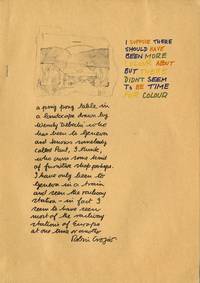 I SUPPOSE THERE
SHOULD HAVE
BEEN MORE
COLOUR ABOUT
BUT THERE
DIDN'T SEEM
TO BE TIME
FOR COLOUR
a ping pong table in
a landscape drawn by
Wendy who
has been to Geneva
and knows somebody
called Paul, I think,
who owns some kind
of furniture shop perhaps.
I have only been to
Geneva in a train
and seen the railway
station - in fact I
seem to have seen
most of the railway
stations of Europe
at one time or another